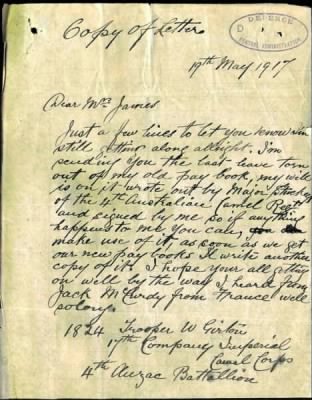 Copy of Letter
DEFENCE
CENTRAL ADMINISTRATION
19th May 1917
Dear Mrs James
Just a few lines to let you know I'm
still getting along allright. I'm
sending you the last leave torn
out of my old pay book, my will
is on it wrote out by Major
of the 4th Australian Camel Regt
and signed by me so if anything
happens to me you can,
make use of it, as soon as we get
our new pay books I'll write another
copy of it. I hope your all getting
on well by the way I heard from
Jack McCurdy from France well
so long.
1824 Trooper W Girton
17th Company Imperial
Camel Corps
4th Anzac Battallion